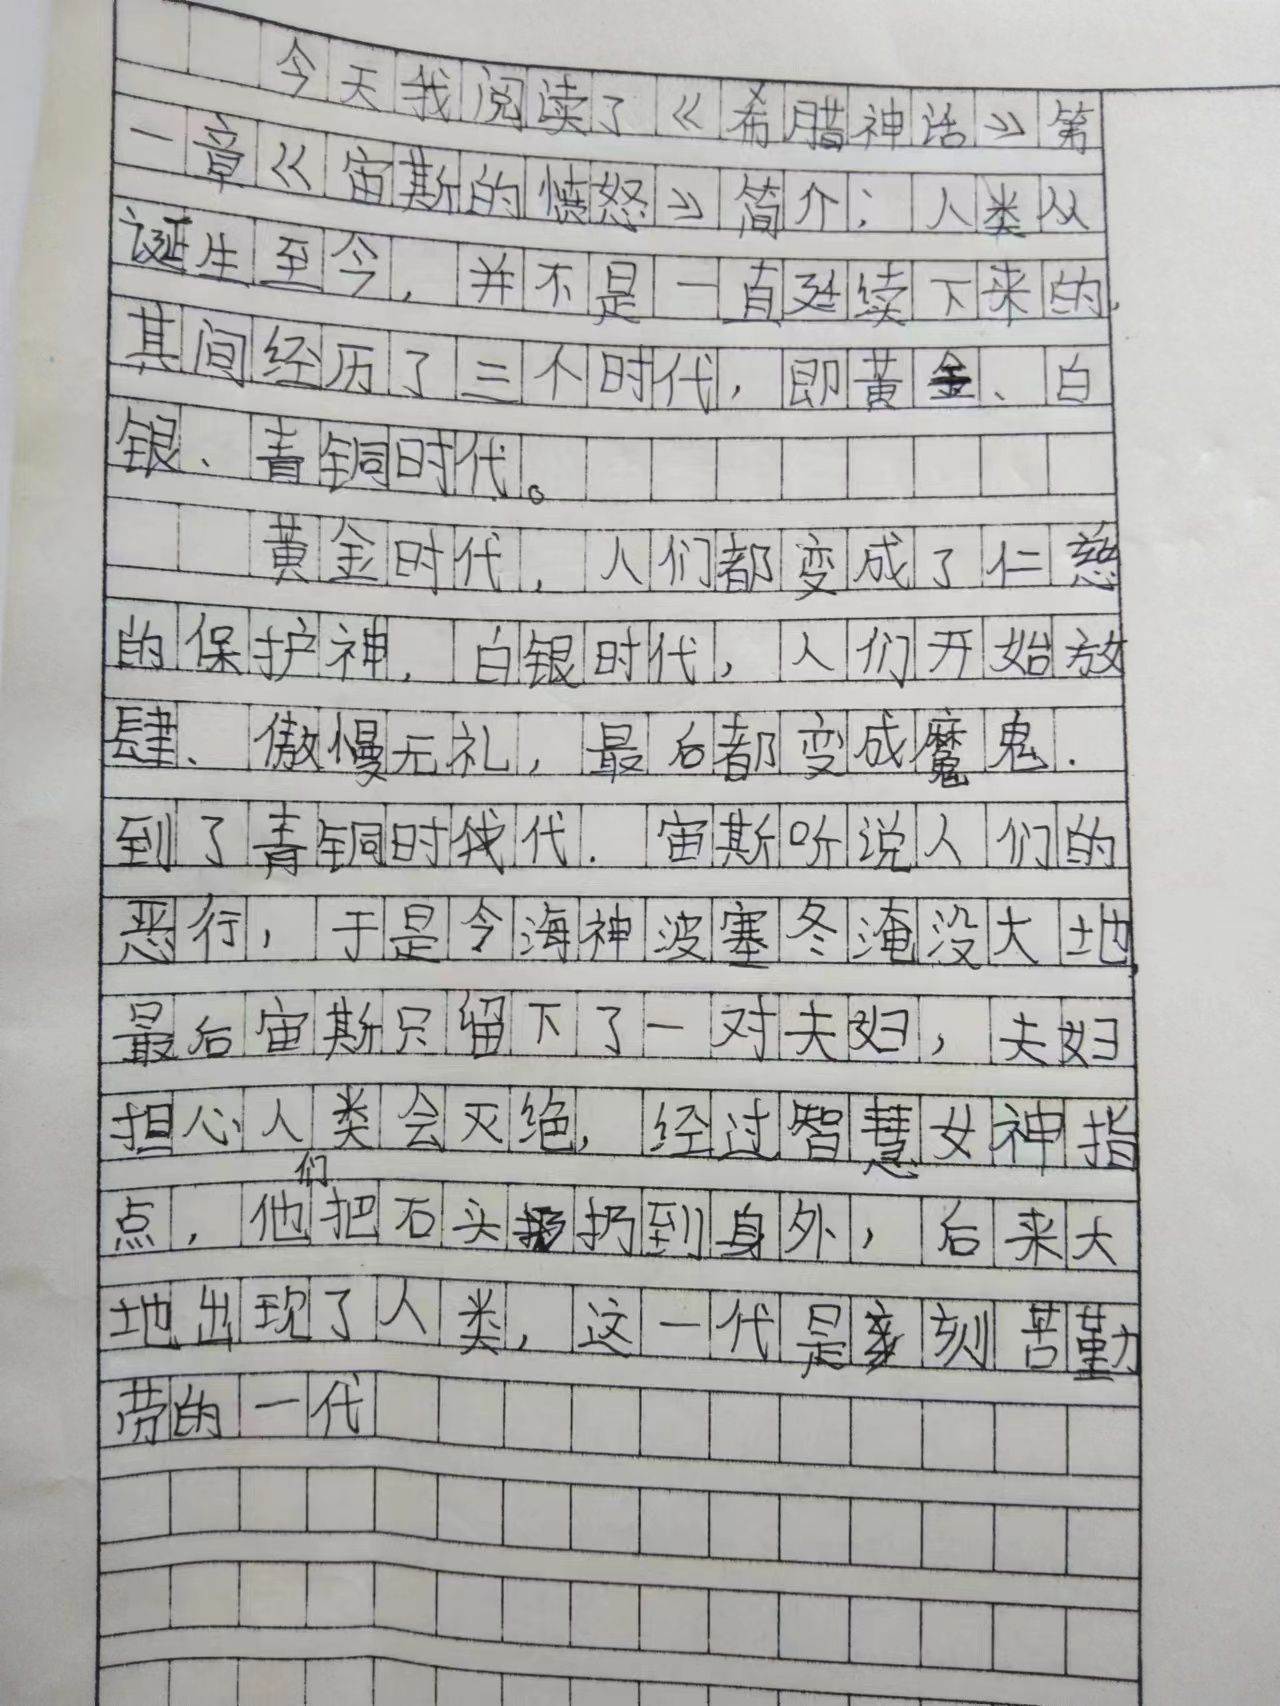 今天我阅读了《希腊神话》第
一章《宙斯的愤怒》简介：人类从
诞生至今，并不是一直延续下来的，
其间经历了三个时代，即黄金、白
银、青铜时代。
黄金时代，人们都变成了仁慈
的保护神，白银时代，人们开始放
肆、傲慢无礼，最后都变成魔鬼．
到了青铜时代．宙斯听说人们的
恶行，于是令海神波塞冬淹没大地，
最后宙斯只留下了一对夫妇，夫妇
担心人类会灭绝，经过智慧女神指
点，他们把石头扔到身外，后来大
地出现了人类，这一代是刻苦勤
劳的一代